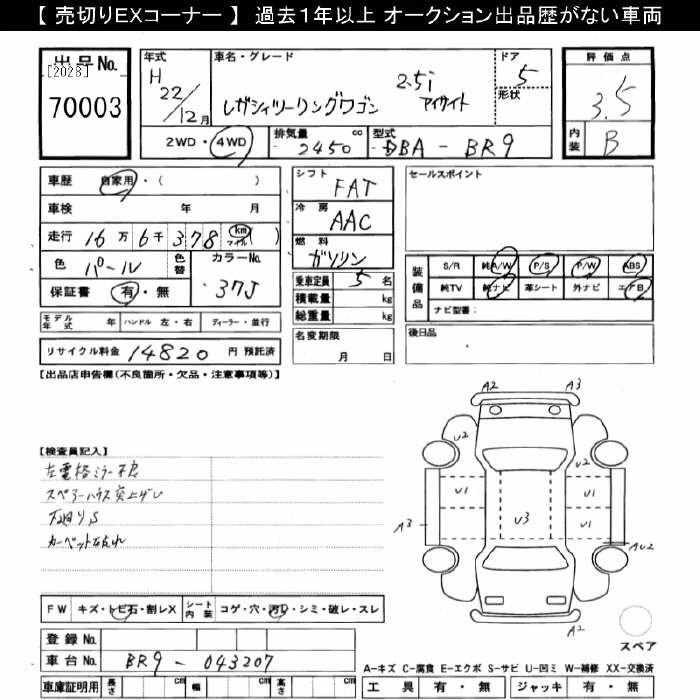 【 売切りEXコーナー 】 過去1年以上 オークション出品歴がない車両
出品No.
［2028］
70003
年式
H
22/12月
車名・グレード
レガシィツーリングワゴン
2.5i
アイサイト
ドア
5
形状
2WD・4WD
排気量
2450 cc
型式
DBA - BR9
評価点
3.5
内装
B
車歴 自家用・( )
車検 年 月
走行 16万 6千 378 (km マイル)
色 パール
色替
カラーNo.
37J
保証書 有・無
モデル年式 年
ハンドル 左・右
ディーラー・並行
リサイクル料金 14820 円 預託済
シフト
FAT
冷房
AAC
燃料
ガソリン
乗車定員 5 名
積載量 kg
総重量 kg
名変期限
月 日
セールスポイント
装備品
S/R 純A/W P/S P/W ABS
純TV 純ナビ 革シート 外ナビ エアB
ナビ型番:
後日品
【出品店申告欄(不良箇所・欠品・注意事項等)】
【検査員記入】
左電格ミラー不良
下廻りS
A2
A3
U2
U1
U1
U3
U1
U1
A3
AU2
A2
スペア
FW キズ・トビ石・割レX
シート内装 コゲ・穴・汚レ・シミ・破レ・スレ
登録No.
車台No. BR9-043207
車庫証明用 長さ cm 幅 cm 高さ cm
A-キズ C-腐食 E-エクボ S-サビ U-凹ミ W-補修 XX-交換済
工具 有・無 ジャッキ 有・無